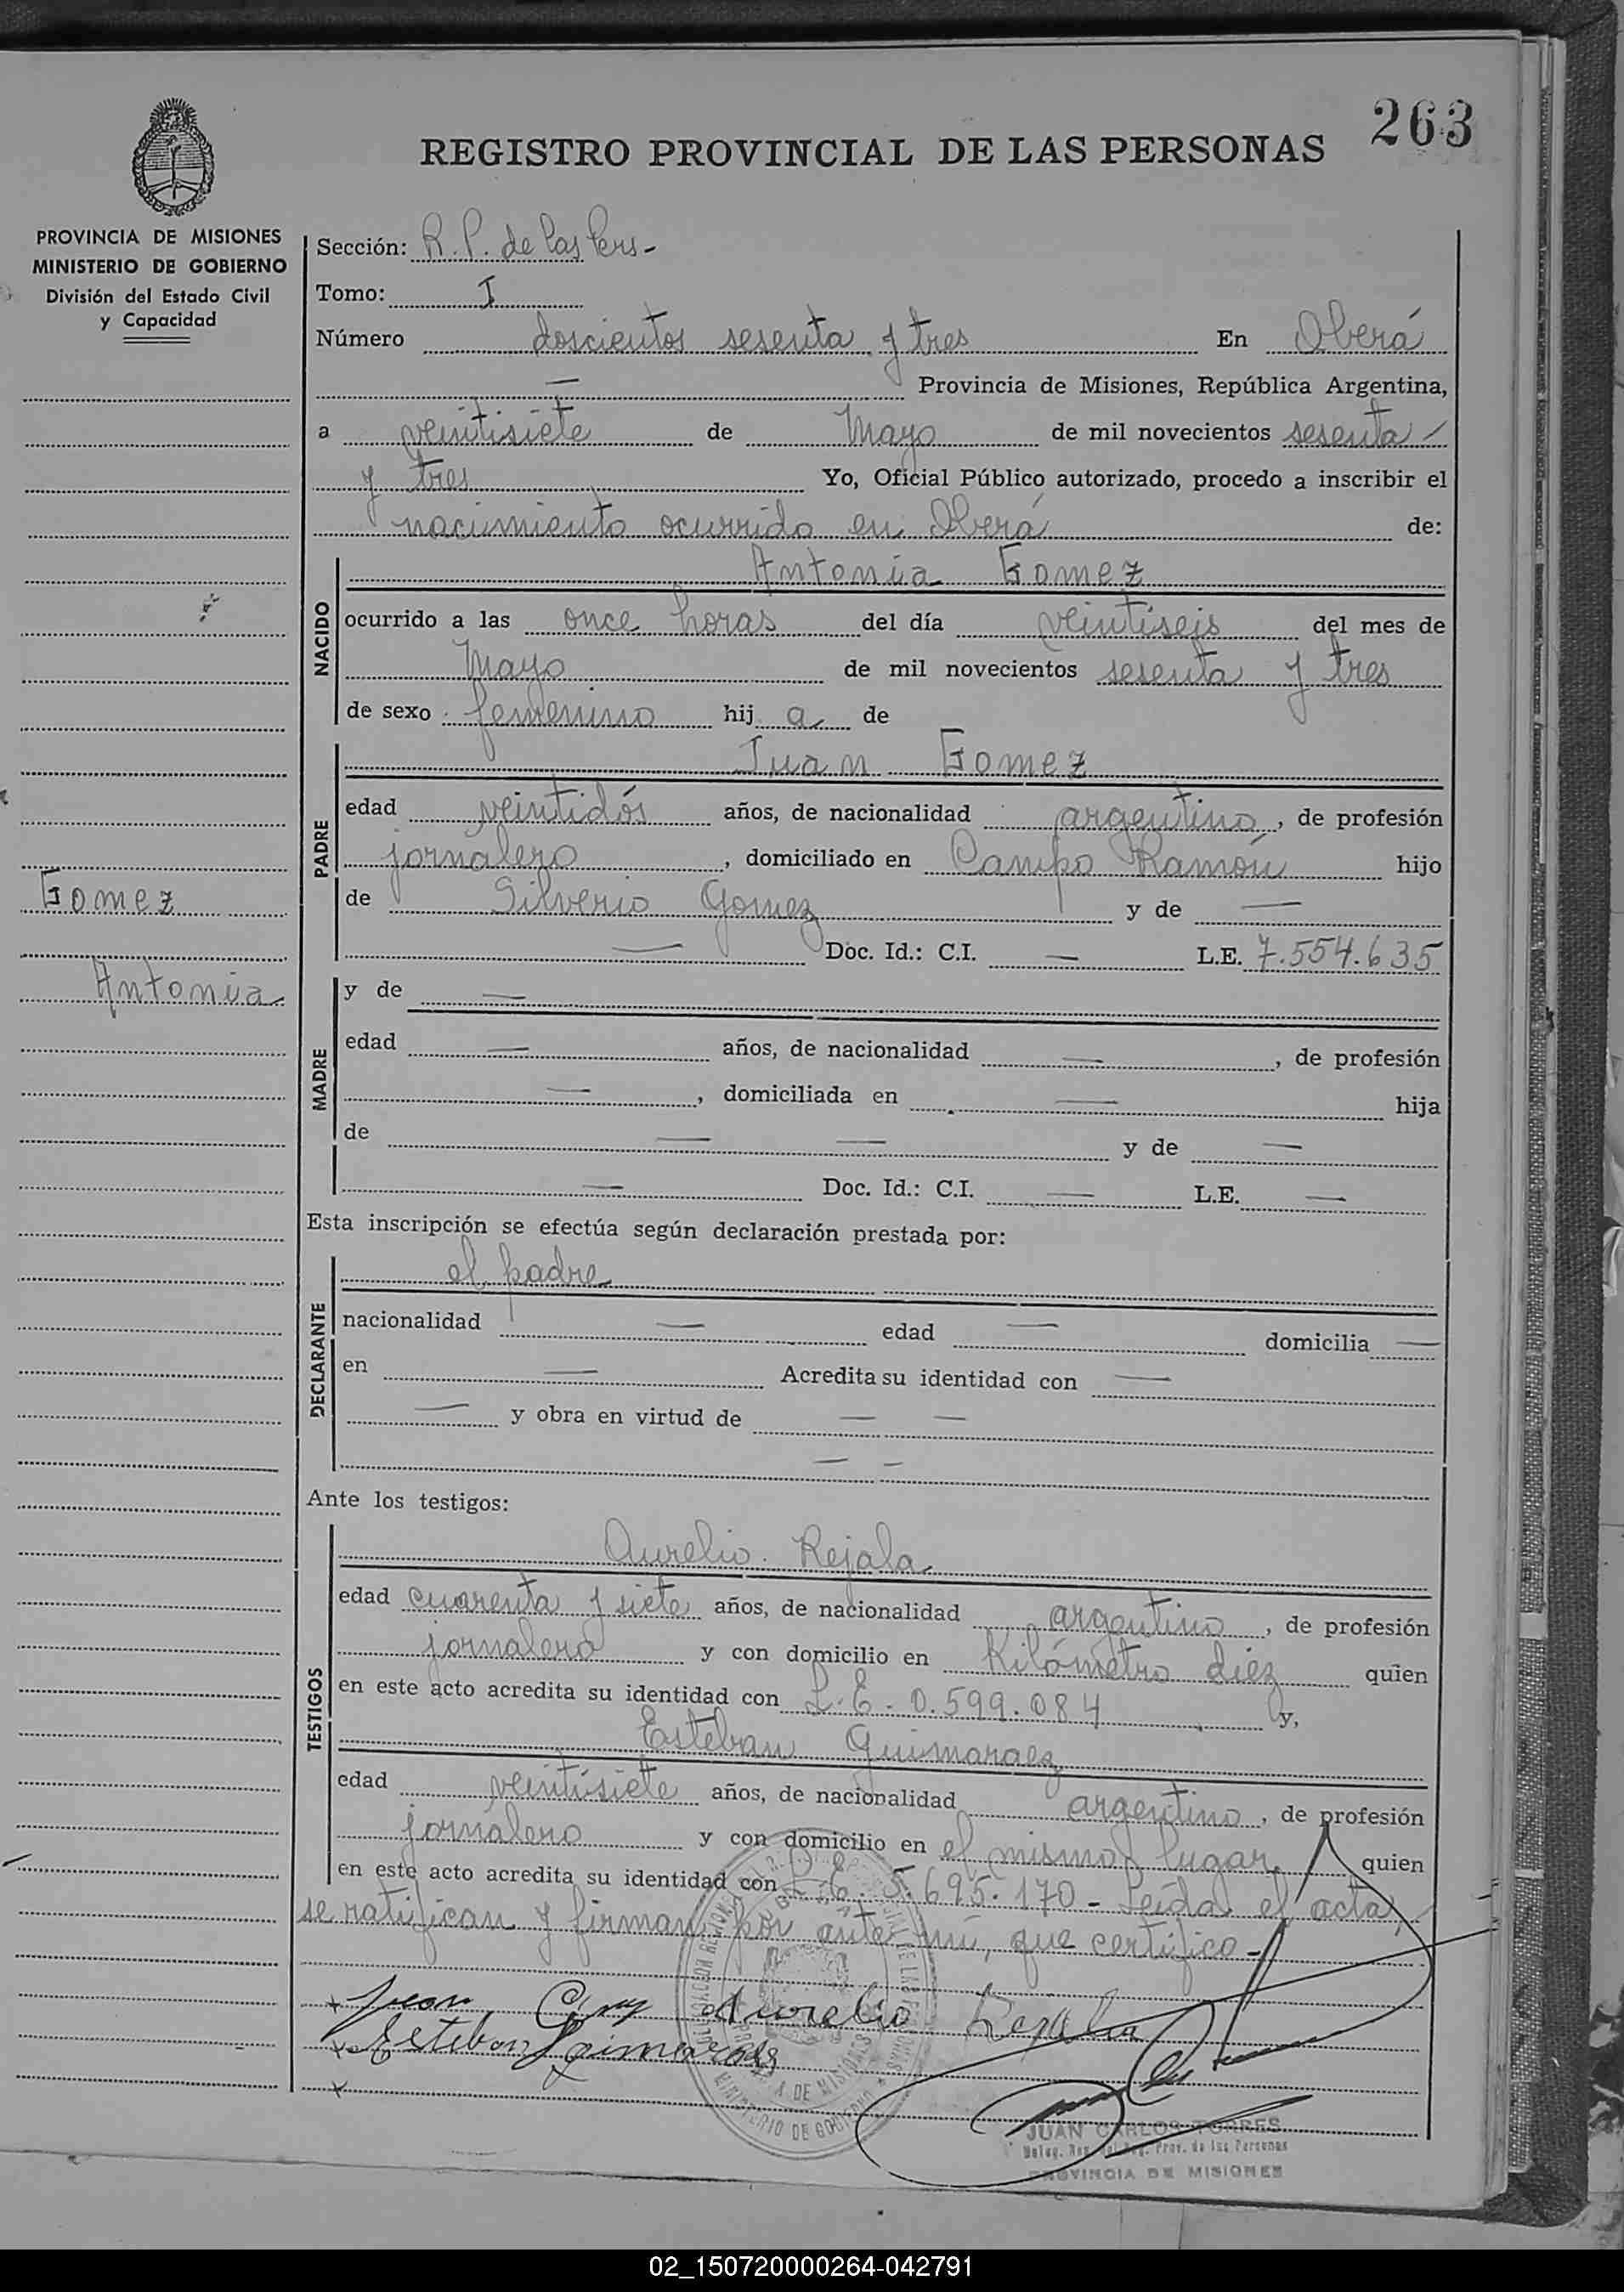 263
REGISTRO PROVINCIAL DE LAS PERSONAS
PROVINCIA DE MISIONES
MINISTERIO DE GOBIERNO
División del Estado Civil
y Capacidad
Gomez
Antonia
Sección: R. P. de las Pers-
Tomo: I
Número doscientos sesenta y tres En Oberá
— Provincia de Misiones, República Argentina,
a veintisiete de Mayo de mil novecientos sesenta
y tres Yo, Oficial Público autorizado, procedo a inscribir el
nacimiento ocurrido en Oberá de:
NACIDO
Antonia Gomez
ocurrido a las once horas del día veintiseis del mes de
Mayo de mil novecientos sesenta y tres
de sexo femenino hij a de
PADRE
Juan Gomez
edad veintidós años, de nacionalidad argentino, de profesión
jornalero, domiciliado en Campo Ramón hijo
de Silverio Gomez y de —
— Doc. Id.: C.I. — L.E. 7.554.635
MADRE
y de —
edad — años, de nacionalidad —, de profesión
—, domiciliada en — hija
de — — y de —
— Doc. Id.: C.I. — L.E. —
Esta inscripción se efectúa según declaración prestada por:
DECLARANTE
el padre
nacionalidad — edad — domicilia —
en — Acredita su identidad con —
— y obra en virtud de — —
— —
Ante los testigos:
TESTIGOS
Aurelio Rejala
edad cuarenta y siete años, de nacionalidad argentino, de profesión
jornalero y con domicilio en Kilómetro diez quien
en este acto acredita su identidad con L.E. 0.599.084 y,
Esteban Guimaraez
edad veintisiete años, de nacionalidad argentino, de profesión
jornalero y con domicilio en el mismo lugar quien
en este acto acredita su identidad con L.E. 5.695.170 - Leída el acta,
se ratifican y firman por ante mí, que certifico -
Juan Aurelio Rejala
Esteban
MINISTERIO DE GOBIERNO
JUAN CARLOS TORRES
Prov. de las Personas
PROVINCIA DE MISIONES
02_150720000264-042791